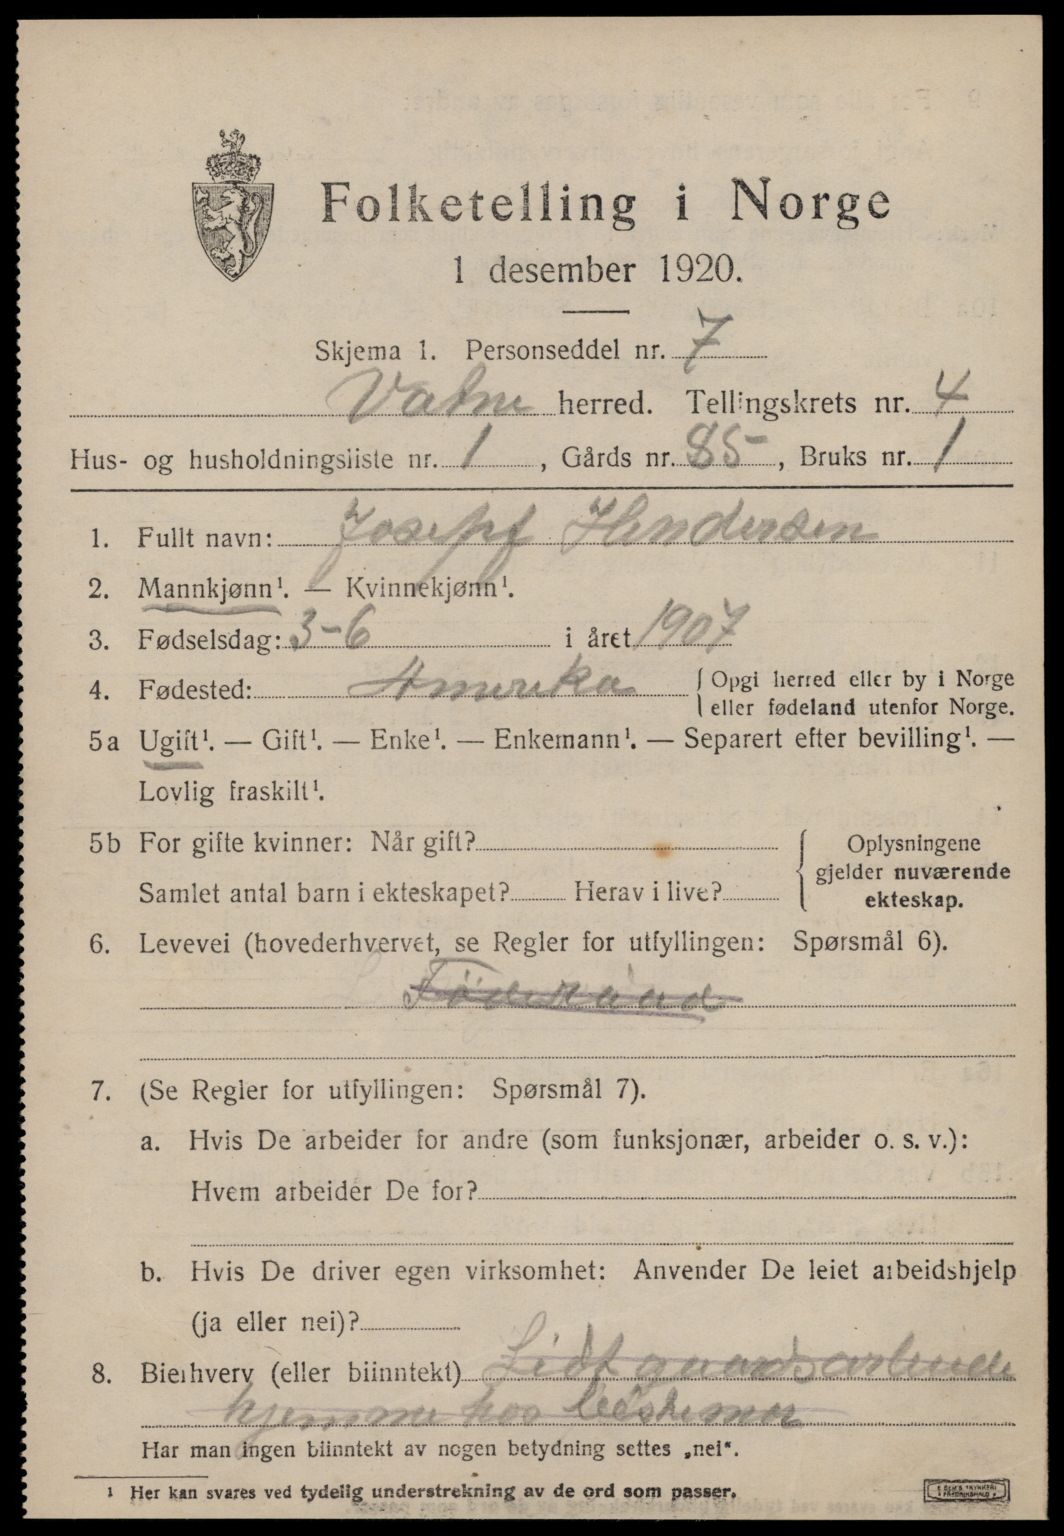 Folketelling i Norge
1 desember 1920.
Skjema 1. Personseddel nr. 7
Vatne herred. Tellingskrets nr. 4
Hus- og husholdningsliste nr. 1, Gårds nr. 85, Bruks nr. 1
1. Fullt navn: Josepf Hendersen
2. Mannkjønn¹. — Kvinnekjønn¹.
3. Fødselsdag: 3-6 i året 1907
4. Fødested: Amerika { Opgi herred eller by i Norge
eller fødeland utenfor Norge.
5a Ugift¹. — Gift¹. — Enke¹. — Enkemann¹. — Separert efter bevilling¹. —
Lovlig fraskilt¹.
5b For gifte kvinner: Når gift?
Samlet antal barn i ekteskapet? Herav i live?
Oplysningene
gjelder nuværende
ekteskap.
6. Levevei (hovederhvervet, se Regler for utfyllingen: Spørsmål 6).
Føderaad
7. (Se Regler for utfyllingen: Spørsmål 7).
a. Hvis De arbeider for andre (som funksjonær, arbeider o. s. v.):
Hvem arbeider De for?
b. Hvis De driver egen virksomhet: Anvender De leiet arbeidshjelp
(ja eller nei)?
8. Bierhverv (eller biinntekt) Lidt gaardsarbeide
hjemme hos Bestemor
Har man ingen biinntekt av nogen betydning settes „nei“.
¹ Her kan svares ved tydelig understrekning av de ord som passer.